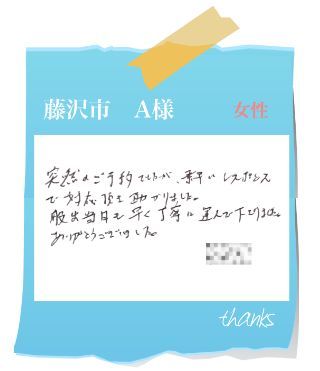 藤沢市　A様　女性
突然のご予約でしたが、素早いレスポンス
で対応頂き助かりました。
搬出当日も早く丁寧に運んで下さいました。
ありがとうございました。
thanks